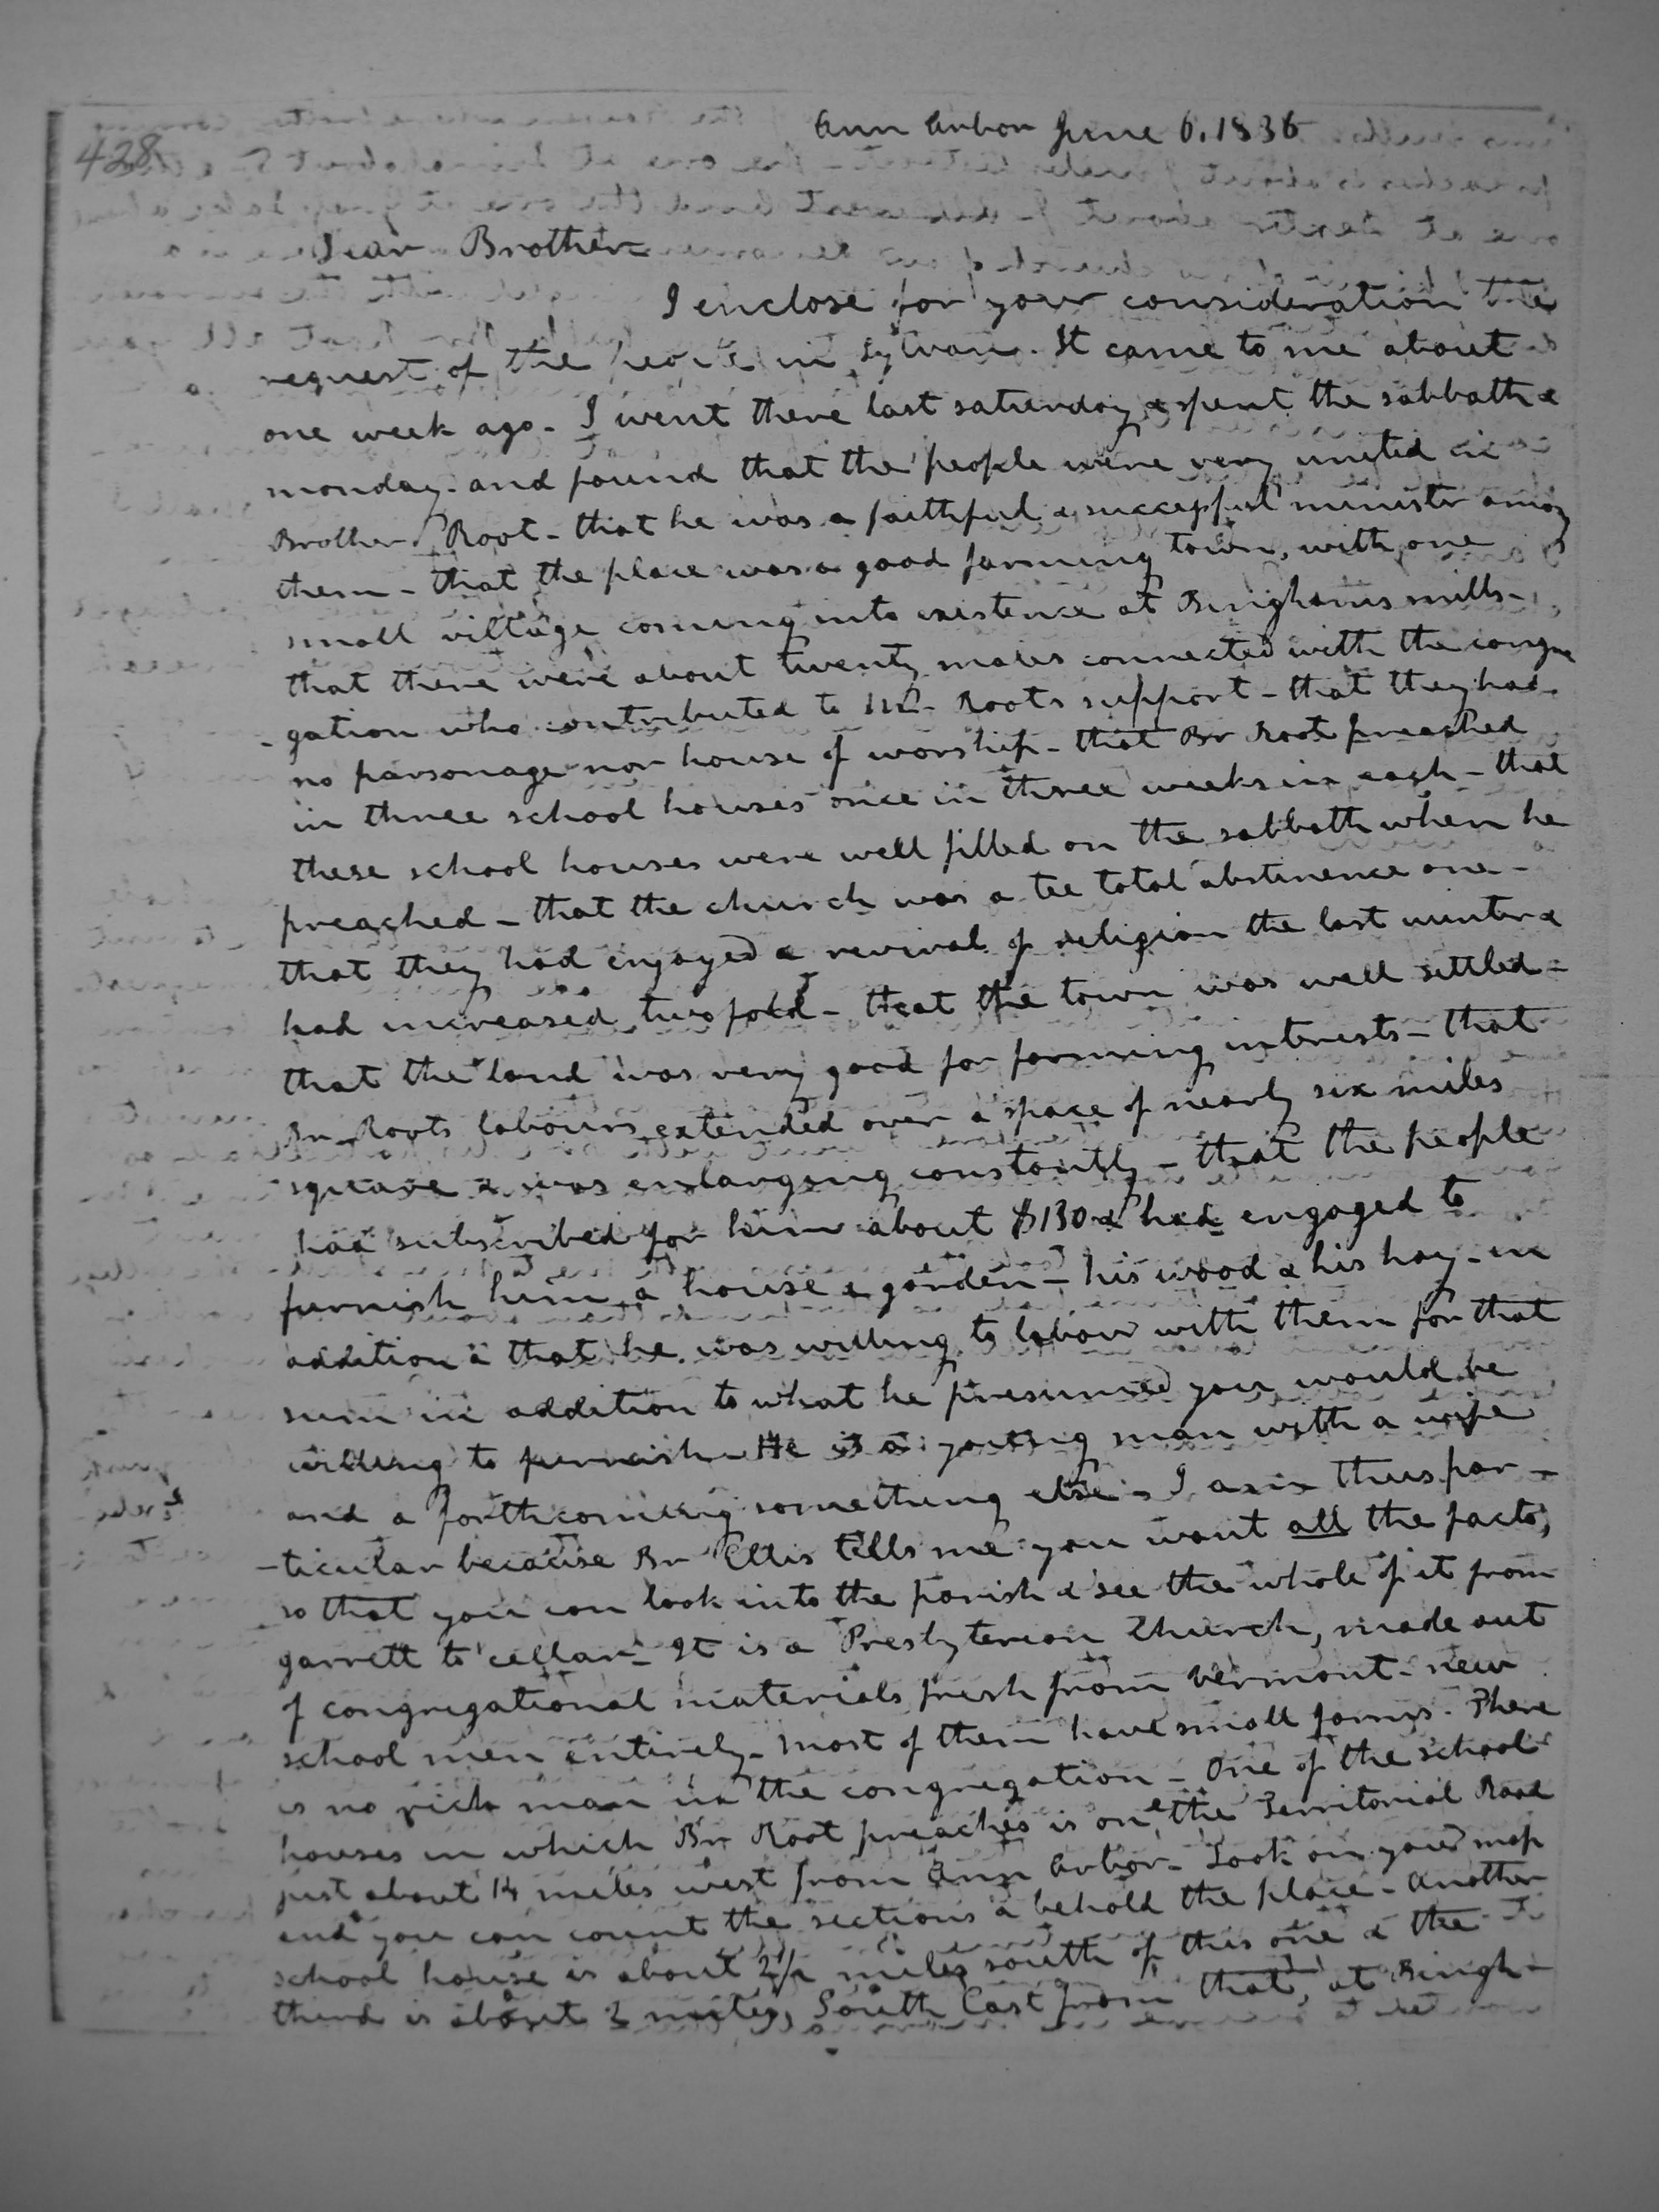 Ann Arbor June 6. 1836
428
Dear Brother
I enclose for your consideration the
request of the people in Sylvan. It came to me about
one week ago. I went there last saturday & spent the sabbath &
monday. and found that the people were very united in
Brother Root - that he was a faithful & successful minister among
them - that the place was a good farming town, with one
small village coming into existence at Binghams mills -
that there were about twenty males connected with the congre
- gation who contributed to Mr. Roots support - that they had
no parsonage nor house of worship - that Br Root preached
in three school houses once in three weeks in each - that
these school houses were well filled on the sabbath when he
preached - that the church was a tee total abstinence one -
that they had enjoyed a revival of religion the last winter &
had increased two fold - that the town was well settled -
that the land was very good for farming interests - that
Br Roots labours extended over a space of nearly six miles
square & was enlarging constantly - that the people
had subscribed for him about $130 & had engaged to
furnish him a house & garden - his wood & his hay - in
addition & that he was willing to labour with them for that
sum in addition to what he presumed you would be
willing to furnish - He is a young man with a wife
and a forthcoming something else - I am thus par -
- ticular because Br Ellis tells me you want all the facts,
so that you can look into the parish & see the whole of it from
garrett to cellar - It is a Presbyterian Church, made out
of congregational materials fresh from Vermont - new
school men entirely - most of them have small farms. There
is no rich man in the congregation - One of the school
houses in which Br Root preaches is on the Territorial Road
just about 14 miles west from Ann Arbor - Look on your map
and you can count the sections & behold the place - Another
school house is about 2 1/2 miles south of this one & the
third is about 2 miles, South East from that, at Bingh -